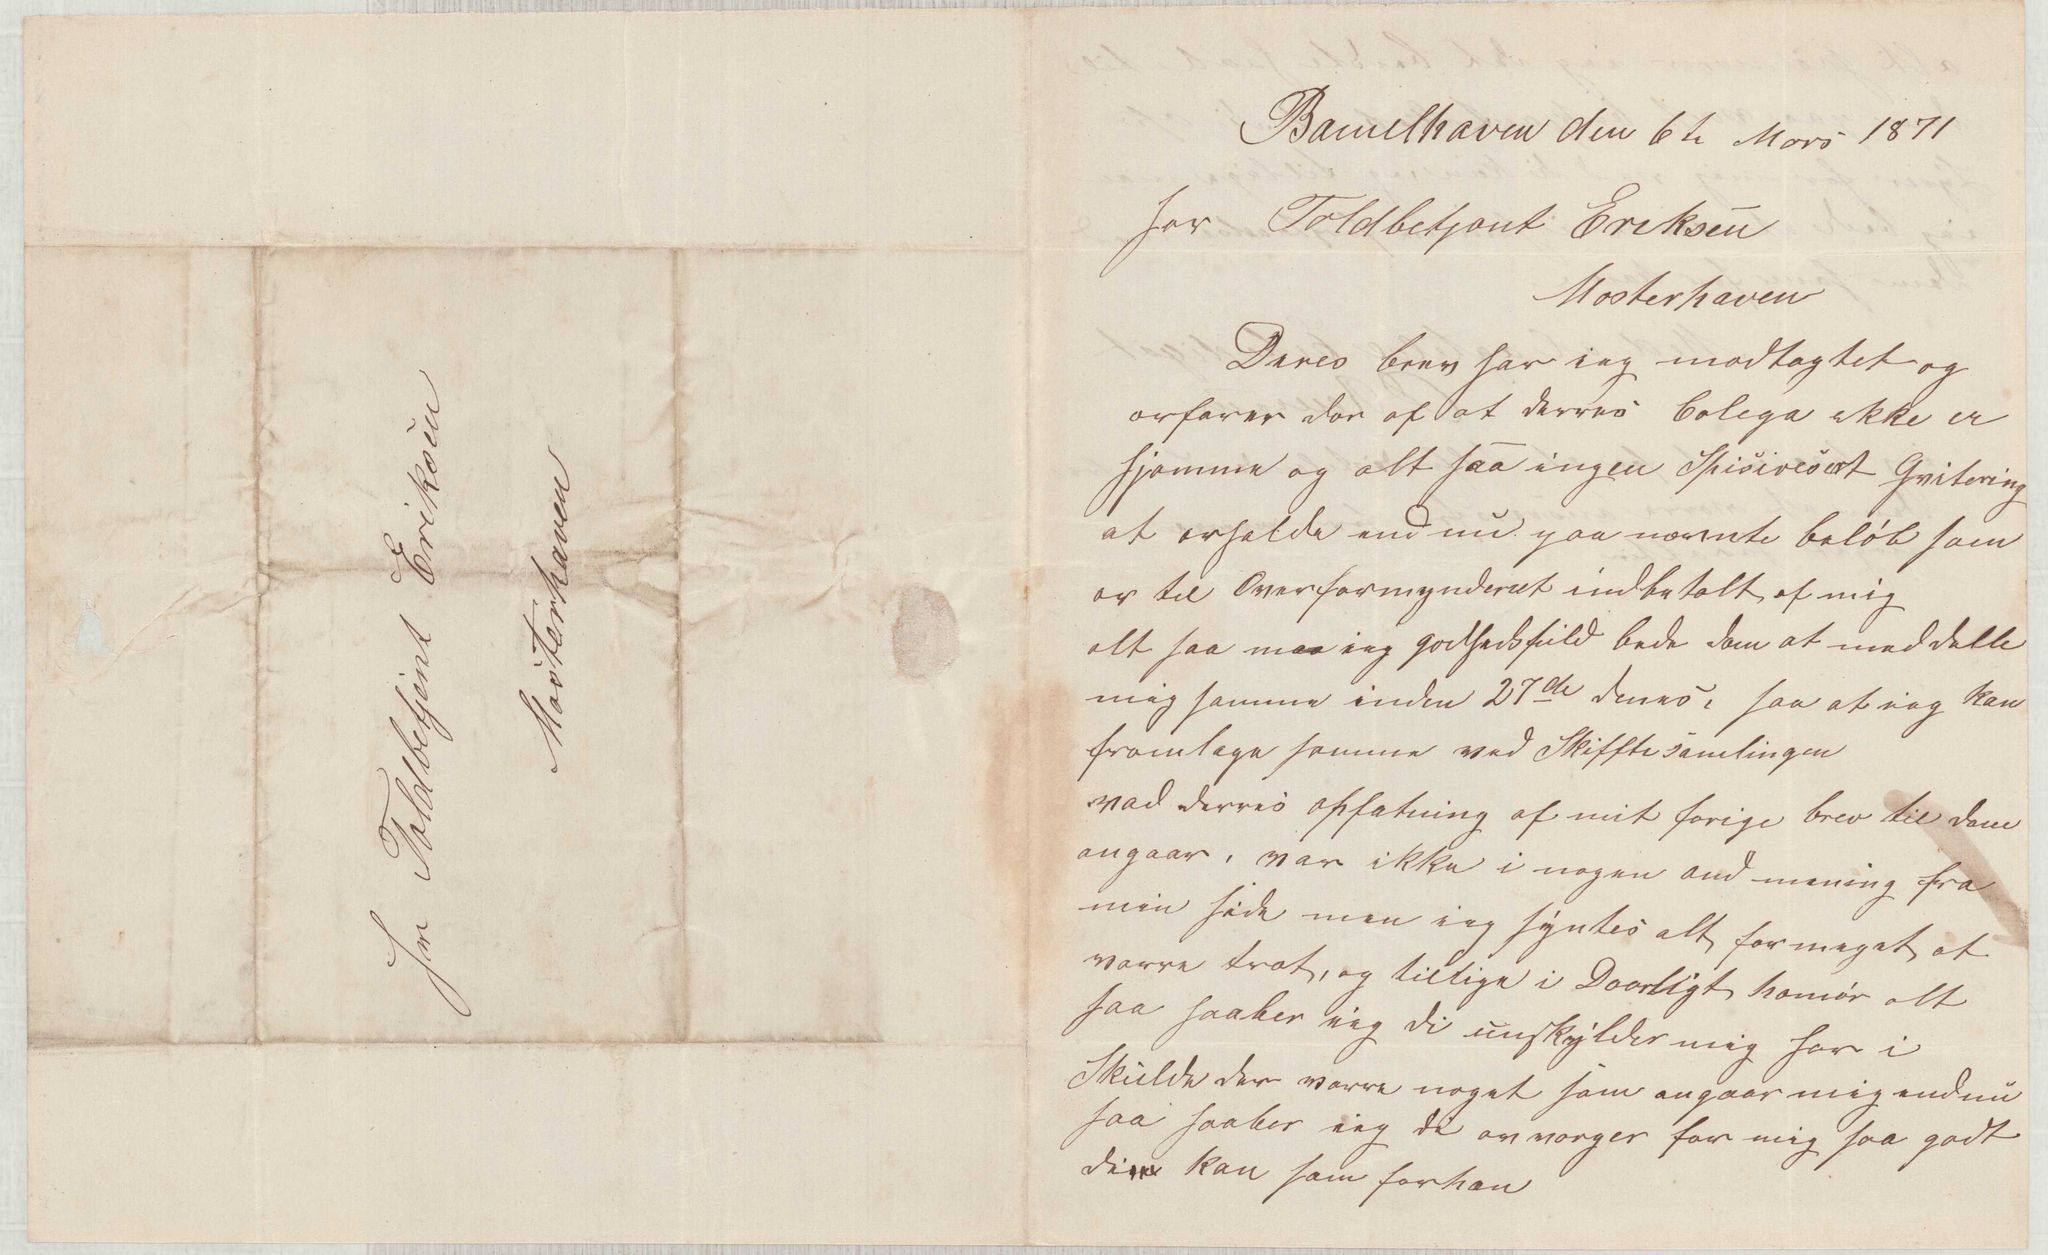 Hr Toldbetjent Eriksen
Mosterhaven
Bamelhaven den 6te Mars 1871
Hr Toldbetjent Eriksen
Mosterhaven
Deres brev har ieg modtagtet og
erfarer der af at derres Colega ikke er
hjemme og alt saa ingen Gvitering
at erholde end nu paa nævnte beløb som
er til Overformynderiet indbetalt af mig
alt saa maa ieg godhedsfuld bede dem at meddelle
mig samme inden 27de denes, saa at ieg kan
fremlege samme ved Skifftesamlingen
vad derres opfatning af mit forige brev til dem
angaar, var ikke i nogen ond mening fra
min side men ieg syntes alt for meget at
verre tret, og tillige i Daarligt homør alt
saa haaber ieg di unskylder mig her i
Skulde der verre noget som angaar mig endnu
saa haaber ieg di er verger for mig saa godt
di kan som forhen